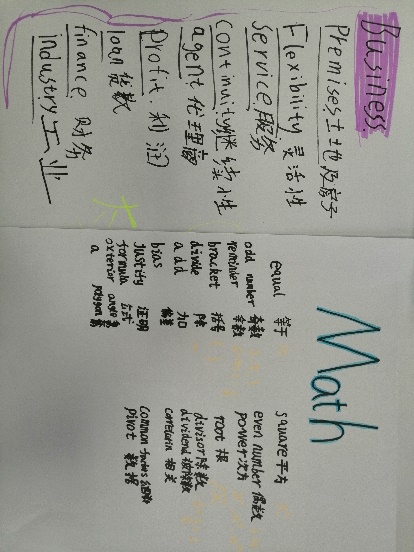 Business
Premises 土地及房子
Flexibility 灵活性
Service 服务
continuity 继续性
agent 代理商
Profit 利润
loan 贷款
finance 财务
industry 工业
Math
equal 等于
odd number 奇数
reminder 余数
bracket 括号
divide 除
add 加
bias 偏差
Justify 证明
formula 方式
exterior angle
a polygon
square 平方
even number 偶数
power 次方
root 根
divisor 除数
dividend 被除数
correlation 相关
common factors
pivot 数据